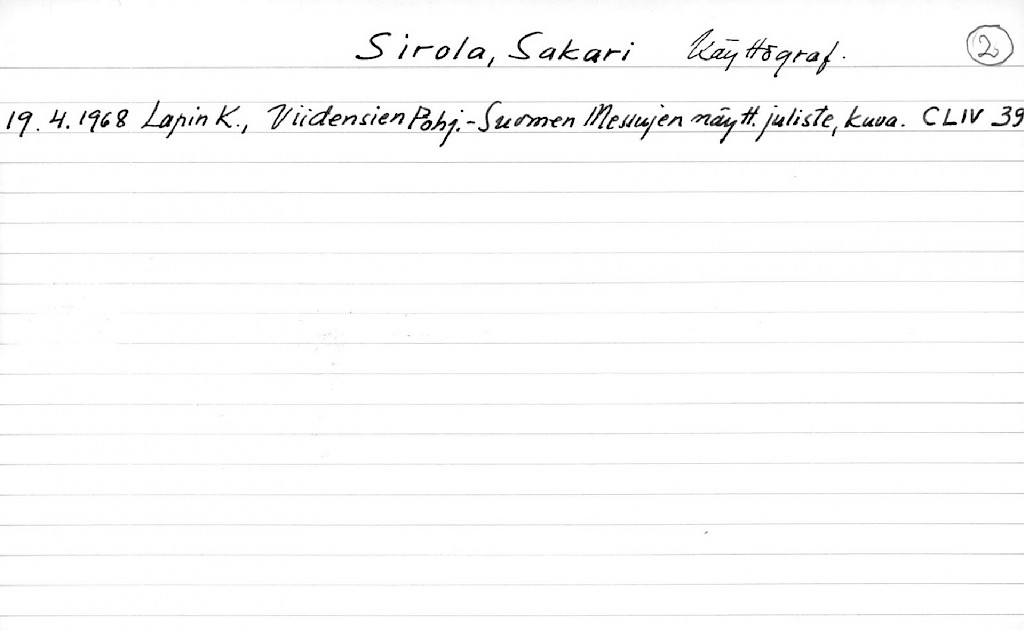 Sirola, Sakari Käyttögraf. 2.
19.4.1968 Lapin K., Viidensien Pohj.-Suomen Messujen näytt. juliste, kuva. CLIV 39